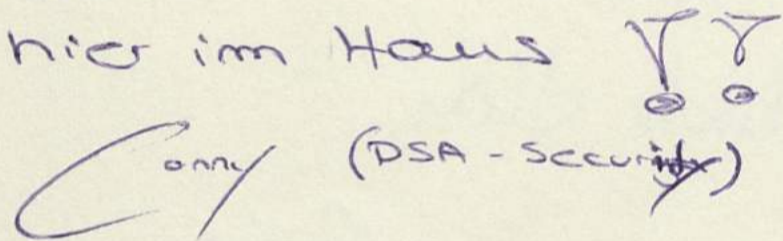 hier im Haus !!
Conny (DSA - Security)